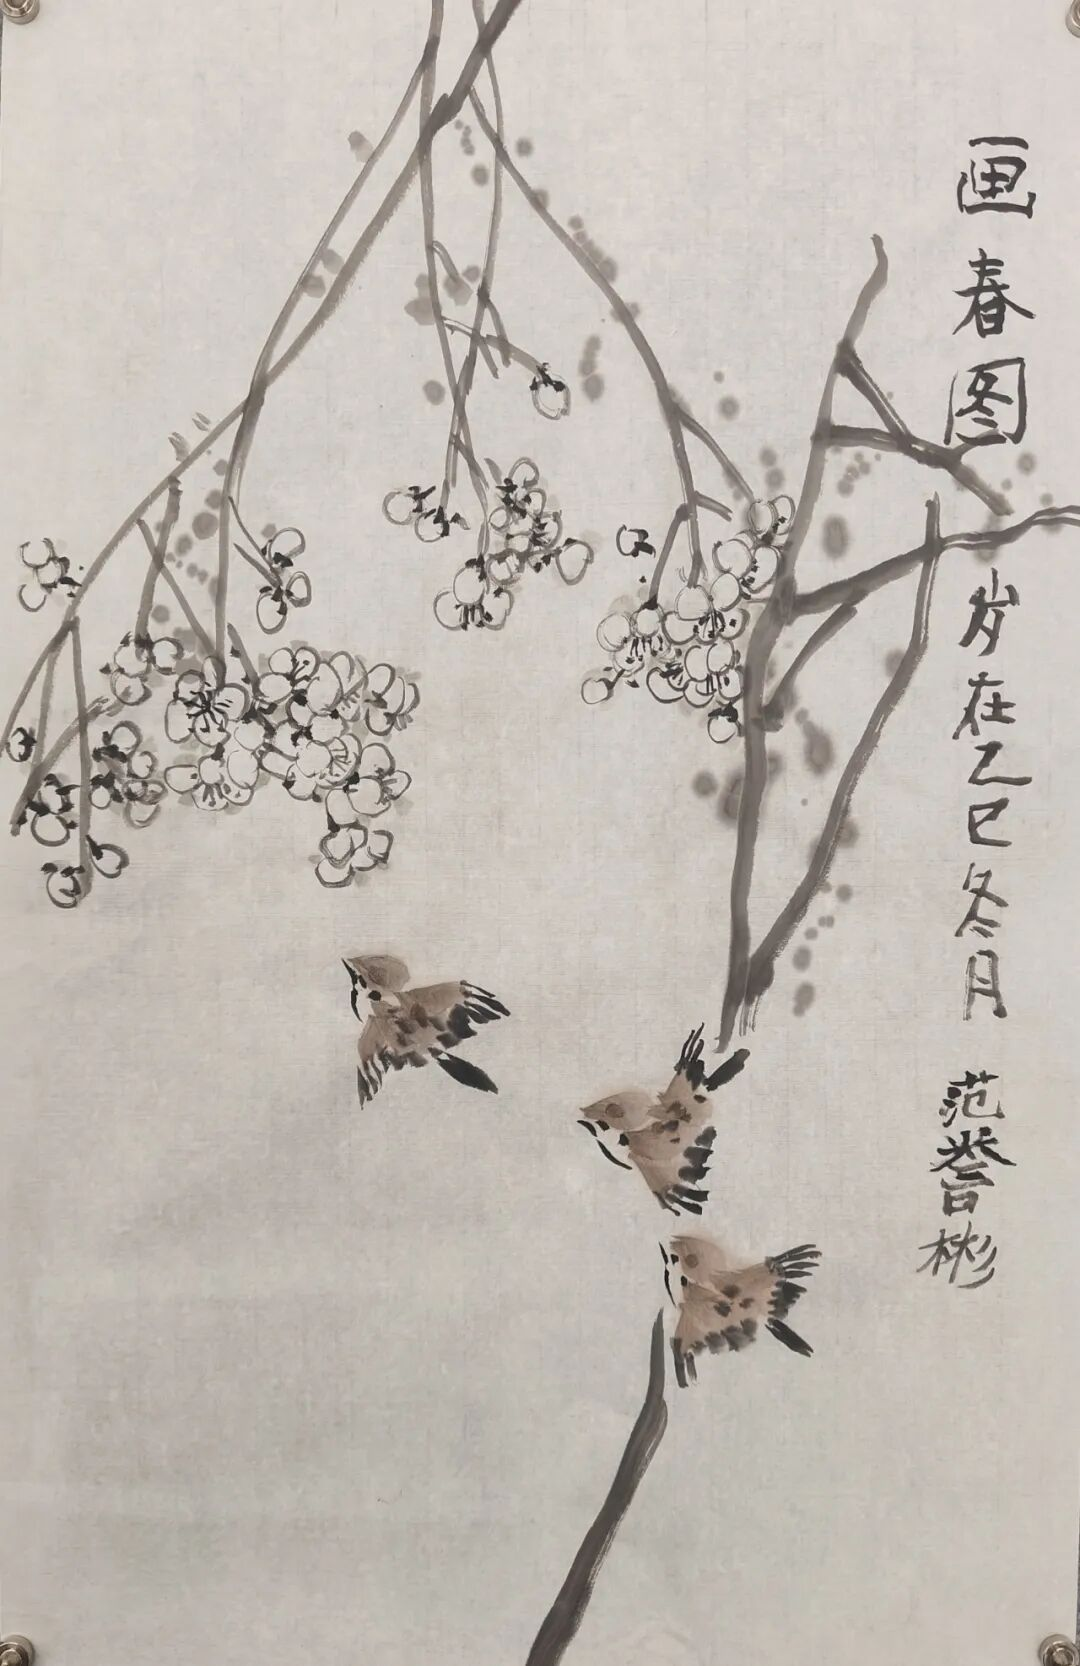 画春图 岁在乙巳冬月 范誉彬